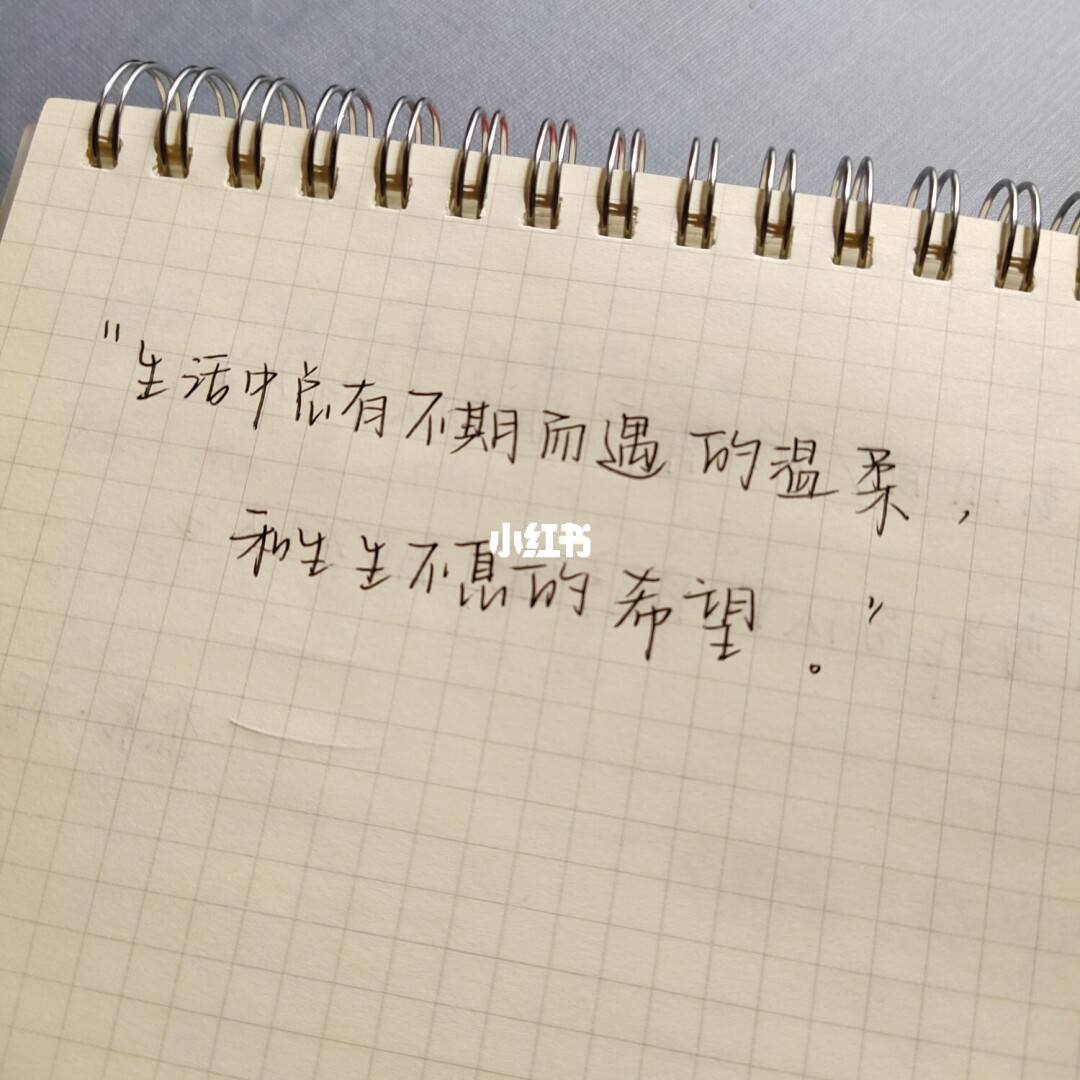 "生活中总有不期而遇的温柔，
和生生不息的希望。"
小红书